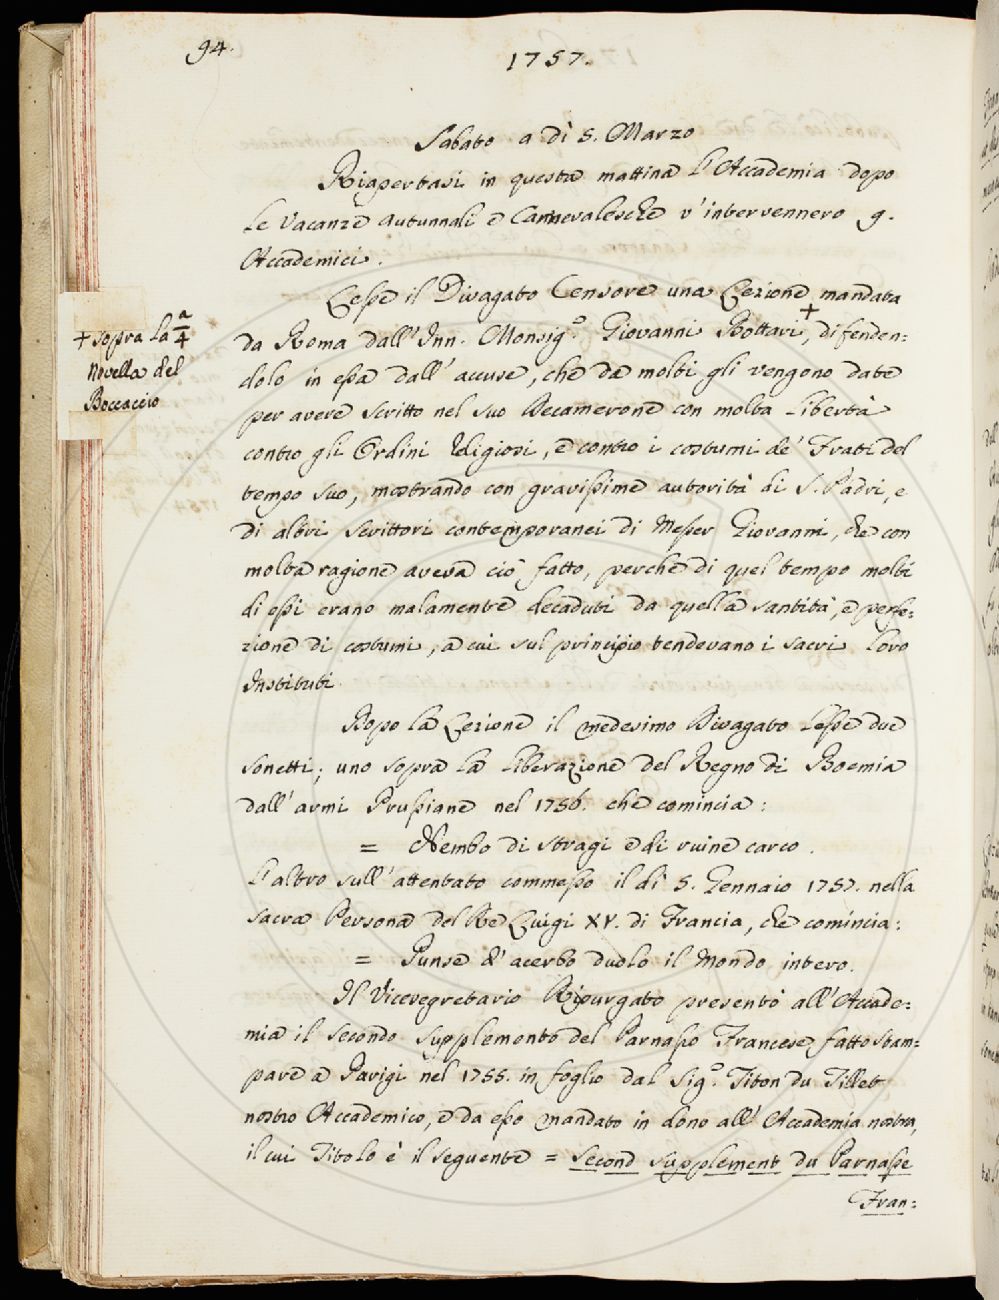 94.
1757.
Sabato a dì 5. Marzo
Riapertasi in questa mattina l'Accademia dopo
le Vacanze Autunnali e Carnevalesche v'intervennero 9.
Accademici.
Lesse il Divagato Censore una Lezione mandata
da Roma dall'Inn. Monsig.º Giovanni Bottari +, difenden:
dolo in essa dall'accuse, che da molti gli vengono date
per avere scritto nel suo Decamerone con molta libertà
contro gli Ordini Religiosi, e contro i costumi de' Frati del
tempo suo, mostrando con gravissime autorità di S. Padri, e
di altri Scrittori contemporanei di Messer Giovanni, che con
molta ragione aveva ciò fatto, perchè di quel tempo molti
di essi erano malamente decaduti da quella santità, e perfe:
zione di costumi, a cui sul principio tendevano i sacri loro
Instituti.
+ sopra la 4ª
Novella del
Boccaccio
Dopo la Lezione il medesimo Divagato lesse due
sonetti; uno sopra la liberazione del Regno di Boemia
dall'armi Prussiane nel 1756. che comincia:
= Nembo di stragi e di ruine carco.
L'altro sull'attentato commesso il dì 5. Gennaio 1757. nella
sacra Persona del Re Luigi XV. di Francia, che comincia:
= Punse d'acerbo duolo il Mondo intero.
Il Vicesegretario Ripurgato presentò all'Accade:
mia il secondo supplemento del Parnasso Francese fatto stam:
pare a Parigi nel 1755. in foglio dal Sig.º Titon du Tillet
nostro Accademico, e da esso mandato in dono all'Accademia nostra,
il cui Titolo è il seguente = Second supplement du Parnasse
Fran: